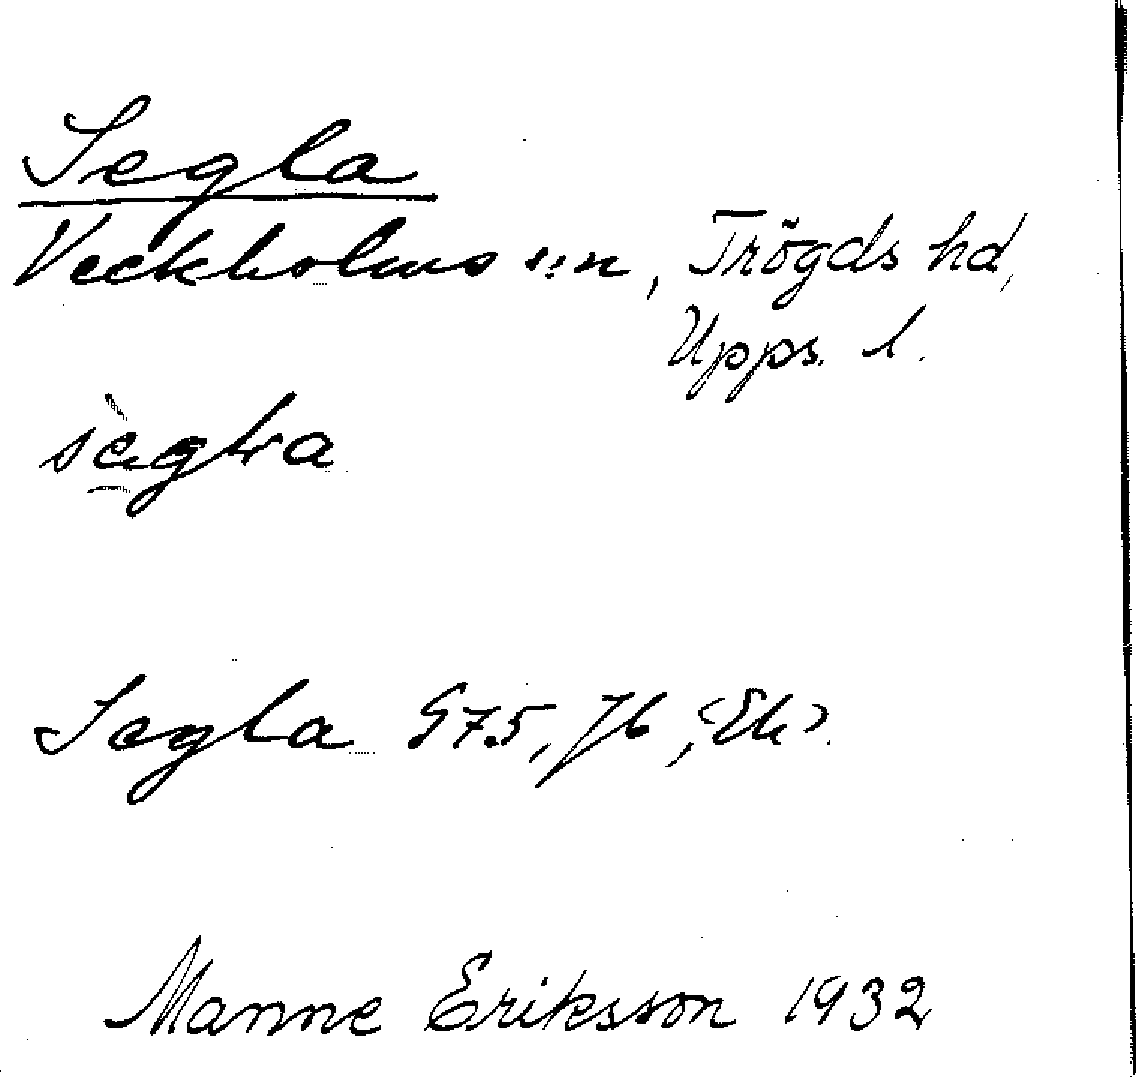 Segla
Veckholms sn, Trögds hd,
Upps. l.
sègla
Segla G75, Jb, <Ek>
Manne Eriksson 1932